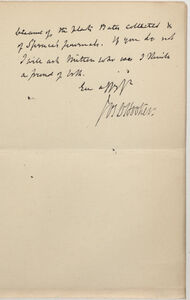 because of the plants Bates collected &
of Spruce's journals. If you do not
I will ask Mitten who was I think
a friend of both.
Ever affy yrs
Jos D Hooker